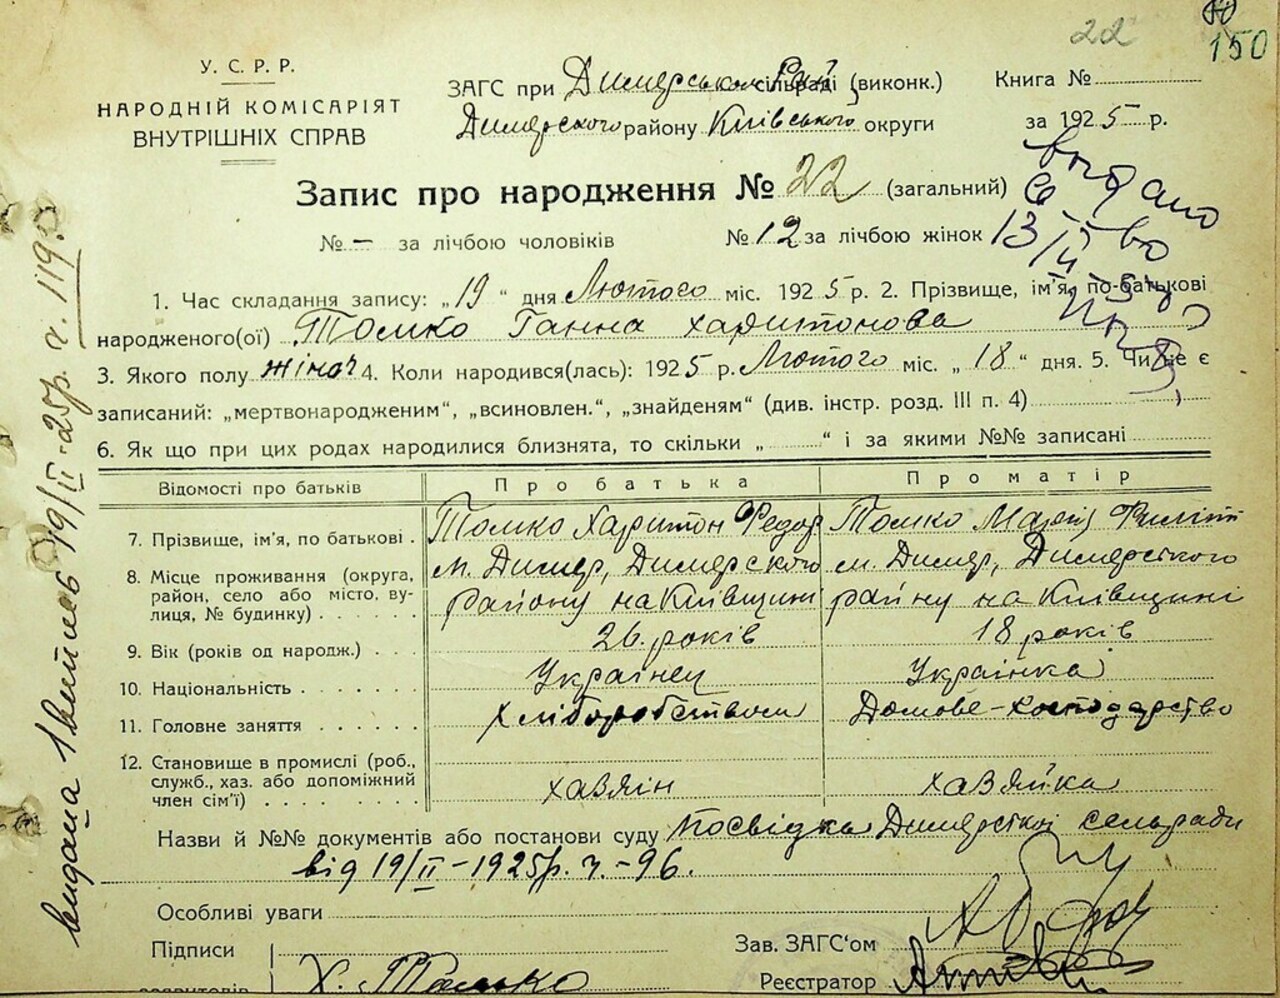 22
150
У. С. Р. Р.
НАРОДНІЙ КОМІСАРІЯТ
ВНУТРІШНІХ СПРАВ
ЗАГС при Димерськом сільраді (виконк.)
Димерского району Київського округи
Книга №
за 1925 р.
Запис про народження № 22 (загальний)
№ – за лічбою чоловіків № 12 за лічбою жінок
видано
13/II
1. Час складання запису: „19“ дня Лютого міс. 1925 р. 2. Прізвище, ім'я, по-батькові
народженого(ої) Томко Ганна Харитонова
3. Якого полу жіноч 4. Коли народився(лась): 1925 р. Лютого міс. „18“ дня. 5. Чи не є
записаний: „мертвонародженим“, „всиновлен.“, „знайденям“ (див. інстр. розд. III п. 4)
6. Як що при цих родах народилися близнята, то скільки „ “ і за якими №№ записані
Відомості про батьків Про батька Про матір
7. Прізвище, ім'я, по батькові . Томко Харитон Федор Томко Марія Филип
8. Місце проживання (округа, район, село або місто, вулиця, № будинку) м. Димер, Димерского м. Димер, Димерського
району на Київщині району на Київщині
9. Вік (років од народж.) . . 26 років 18 років
10. Національність . . . . . . . Українец Українка
11. Головне заняття . . . . . . . Хліборобством Домове-господарство
12. Становище в промислі (роб., служб., хаз. або допоміжний член сім'ї) . . . . . . . . хазяін хазяйка
Назви й №№ документів або постанови суду Посвідка Димерської сельради
від 19/II-1925р. ч.-96.
Особливі уваги
Підписи
заявителів Х. Томко
Зав. ЗАГС'ом
Реєстратор
видана 19/II-25р. ч. 119